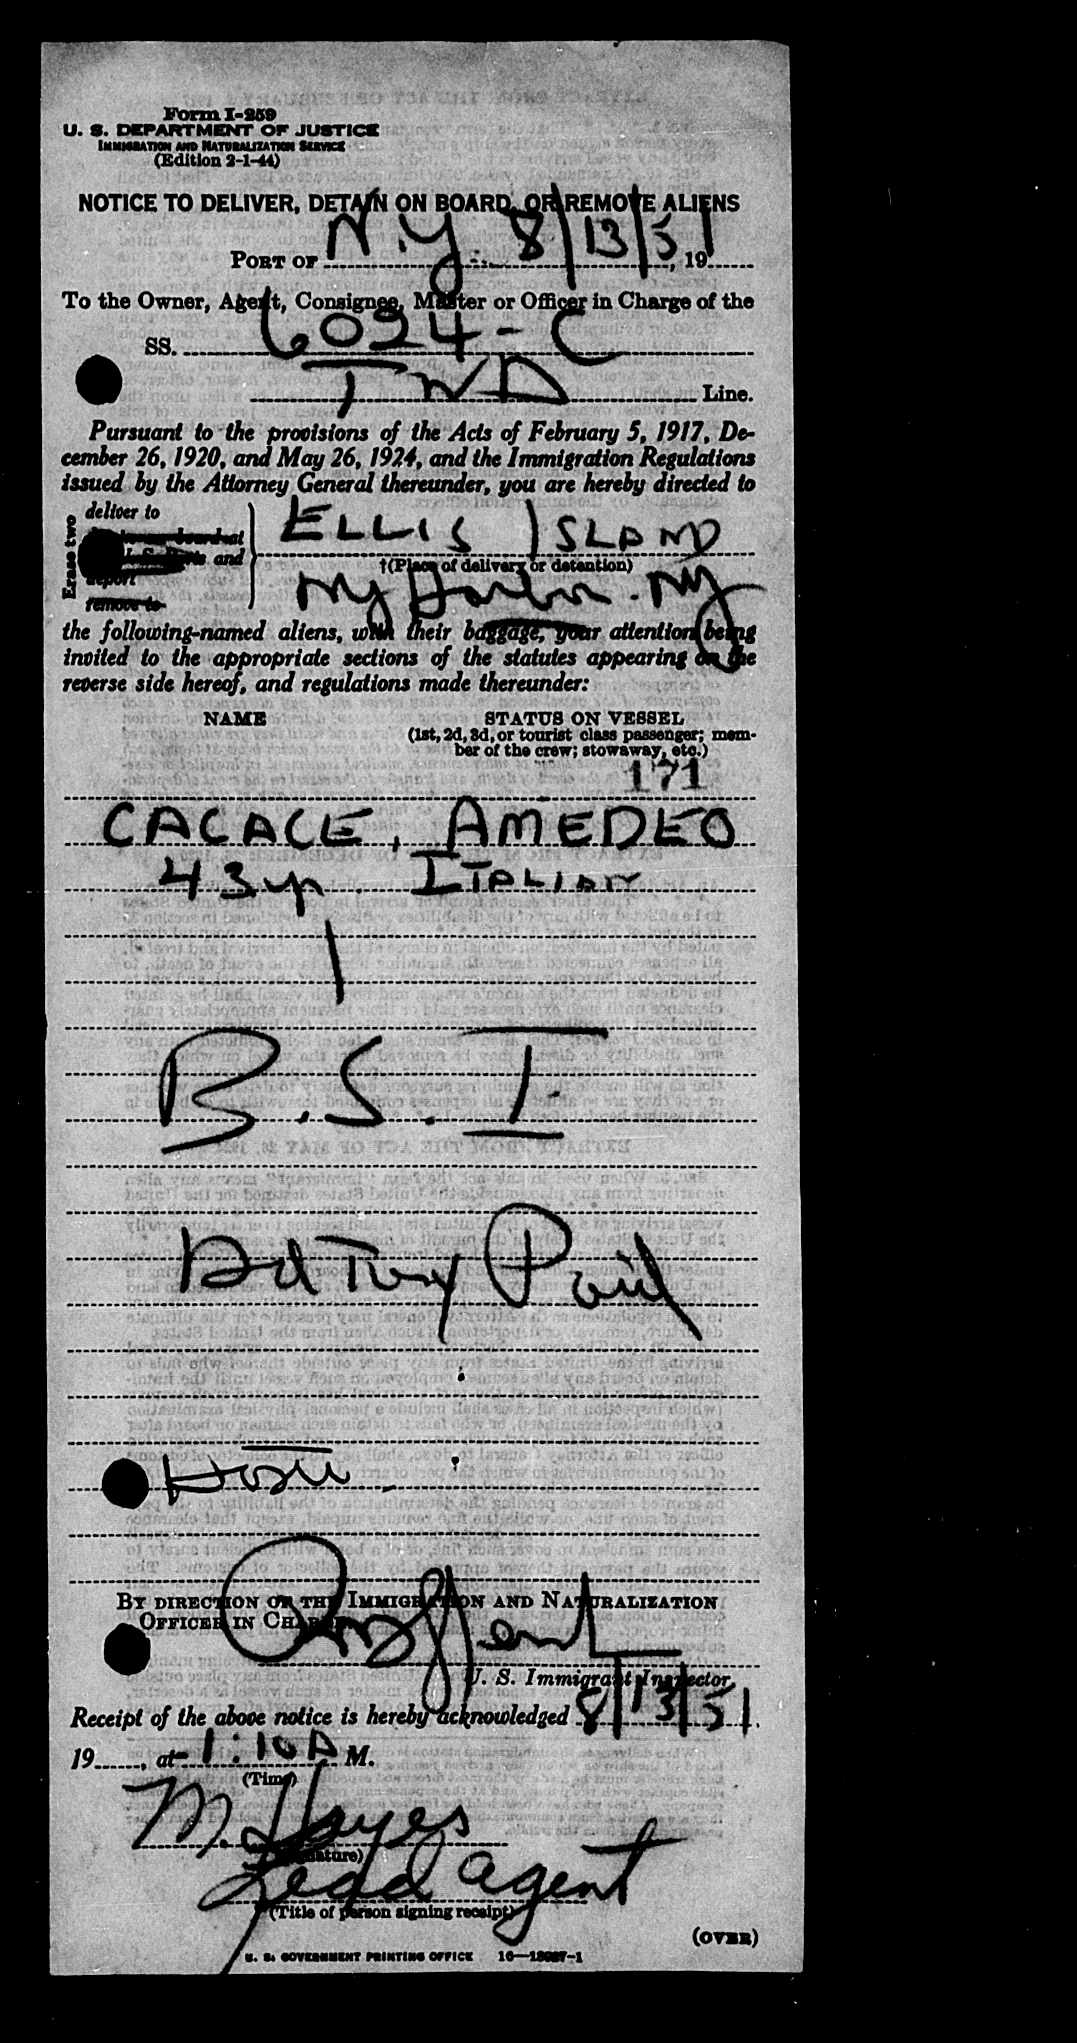 Form I-259
U. S. DEPARTMENT OF JUSTICE
IMMIGRATION AND NATURALIZATION SERVICE
(Edition 2-1-44)
NOTICE TO DELIVER, DETAIN ON BOARD, OR REMOVE ALIENS
PORT OF N.Y. 8/13/51, 19
To the Owner, Agent, Consignee, Master or Officer in Charge of the
SS. 6024-C
TWA Line.
Pursuant to the provisions of the Acts of February 5, 1917, De-
cember 26, 1920, and May 26, 1924, and the Immigration Regulations
issued by the Attorney General thereunder, you are hereby directed to
Erase two
deliver to
ELLIS ISLAND
and
†(Place of delivery or detention)
deport
remove to
NY Harbor. NY
the following-named aliens, with their baggage, your attention being
invited to the appropriate sections of the statutes appearing on the
reverse side hereof, and regulations made thereunder:
NAME STATUS ON VESSEL
(1st, 2d, 3d, or tourist class passenger; mem-
ber of the crew; stowaway, etc.)
171
CACACE, AMEDEO
43 yr. ITALIAN
1
B.S.I.
Paid
BY DIRECTION OF THE IMMIGRATION AND NATURALIZATION
OFFICER IN CHARGE
U. S. Immigrant Inspector.
Receipt of the above notice is hereby acknowledged 8/13/51.
19, at 1:10 A M.
(Time)
M. Hayes
(Signature)
Lead agent
(Title of person signing receipt)
(OVER)
U. S. GOVERNMENT PRINTING OFFICE